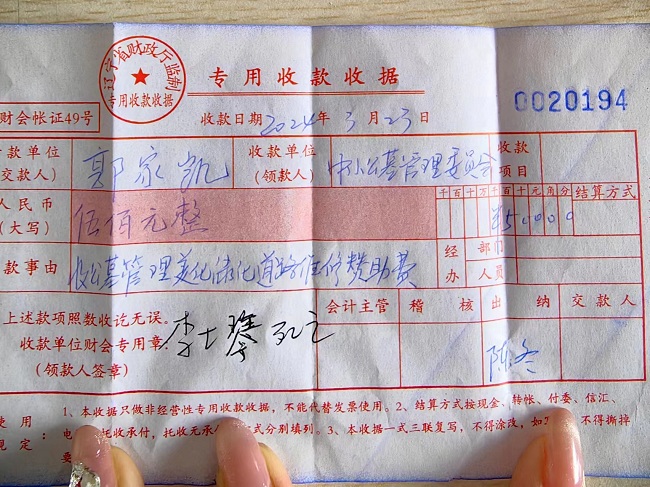 辽宁省财政厅监制
专用收款收据
专用收款收据
0020194
财会帐证49号
收款日期2024年3月23日
款单位 郭家凯 收款单位 公墓管理委员会 收款
(交款人) (领款人) 项目
人民币 伍佰元整 千百十万千百十元角分 结算方式
(大写) ¥50000
款事由 收公墓管理美化绿化道路维修赞助费 经办 部门
人员
上述款项照数收讫无误。 会计主管 稽核 出纳 交款人
收款单位财会专用章 李
(领款人签章) 陈冬
使用 1、本收据只做非经营性专用收款收据，不能代替发票使用。2、结算方式按现金、转帐、付委、信汇、
规定 托收承付，托收无承 式分别填列。3、本收据一式三联复写，不得涂改，如 不得撕掉